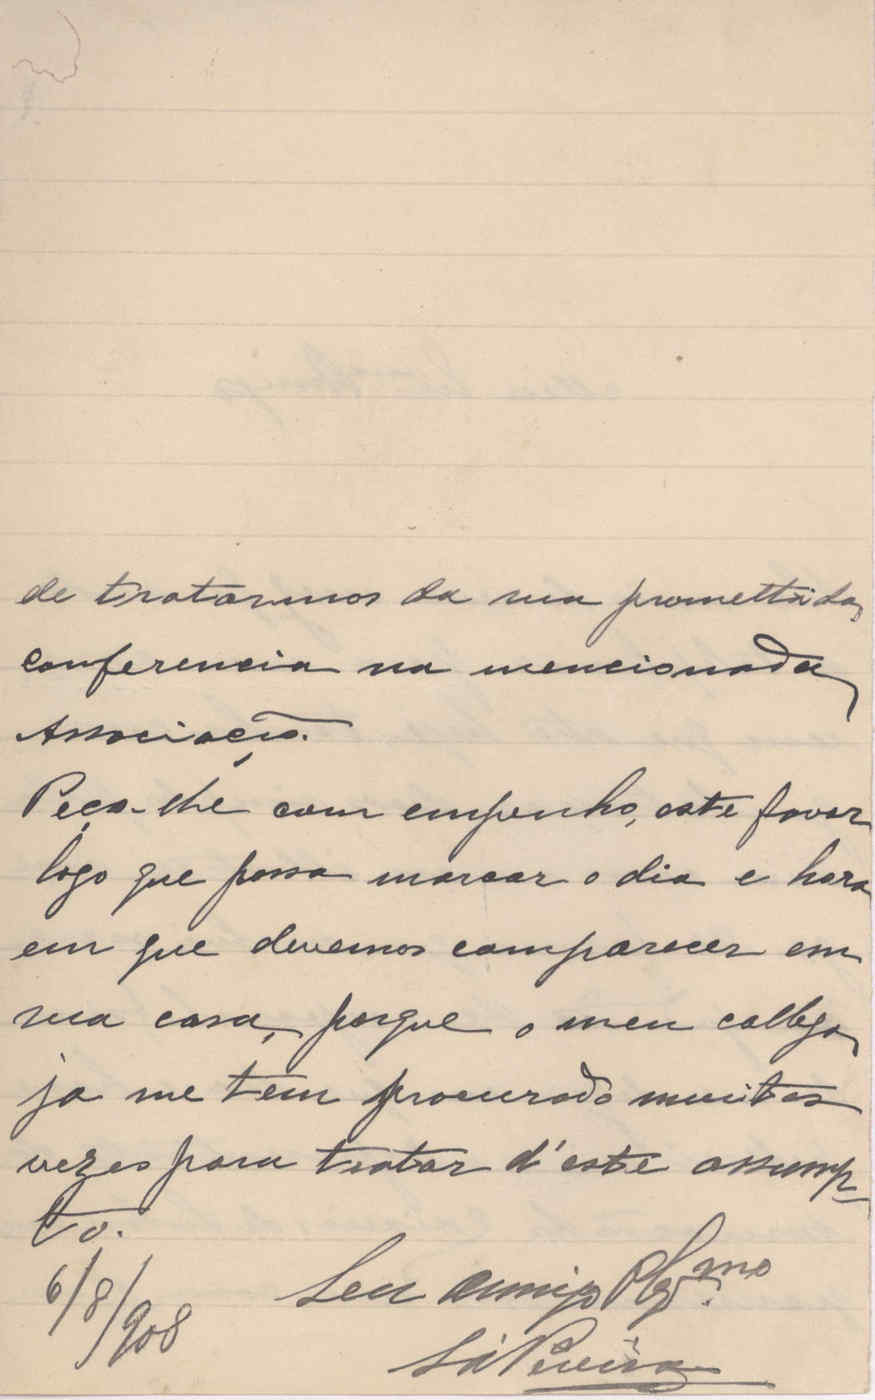 de tratarmos da sua promettida
conferencia na mencionada
Associação.
Peço-lhe com empenho, este favor
logo que possa marcar o dia e hora
em que devemos comparecer em
sua casa, porque o meu collega
ja me tem procurado muitas
vezes para tratar d'este assump-
to.
6/8/908
Seu amigo Obgmo
Sá Pereira